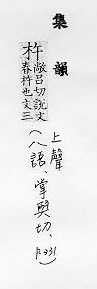 集韻
杵敞呂切說文
舂杵也文三
上聲
(八語、掌與切, p.331)